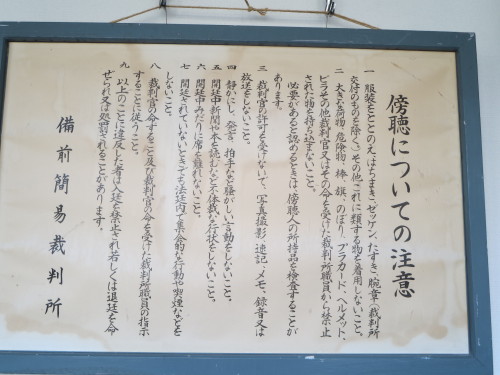 傍聴についての注意
一 服装をととのえ、はちまき、ゼッケン、たすき、腕章(裁判所
交付のものを除く。)その他これに類する物を着用しないこと。
二 大きな荷物、危険物、棒、旗、のぼり、プラカード、ヘルメット、
ビラその他裁判官又はその命を受けた裁判所職員から禁止
された物を持ち込まないこと。
必要があると認めるときは、傍聴人の所持品を検査することが
あります。
三 裁判官の許可を受けないで、写真撮影、速記、メモ、録音又は
放送をしないこと。
四 静かにし、発言、拍手など騒がしい言動をしないこと。
五 開廷中新聞や本を読むなど不体裁な行状をしないこと。
六 開廷中みだりに席を離れないこと。
七 開廷されていないときでも法廷内で集会的な行動や喫煙などを
しないこと。
八 裁判官の命ずること及び裁判官の命を受けた裁判所職員の指示
することに従うこと。
九 以上のことに違反した者は入廷を禁止され若しくは退廷を命
ぜられ又は処罰されることがあります。
備前簡易裁判所